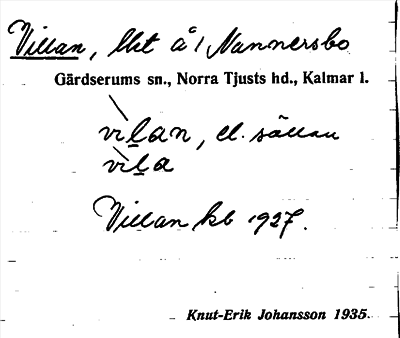 Villan, lht å/ Nannersbo
Gärdserums sn., Norra Tjusts hd., Kalmar l.
vilan, el. sällan
vila
Villan kb 1927.
Knut-Erik Johansson 1935.